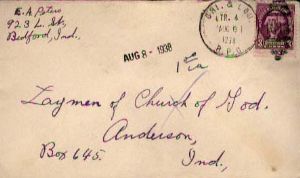 E. A. Peters
923 L. St,
Bedford, Ind.
AUG 8 - 1938
CHI. & LOU.
TR. 4
AUG 6
1938
R.P.O.
3
Laymen of Church of God.
Anderson,
Box 645.
Ind,